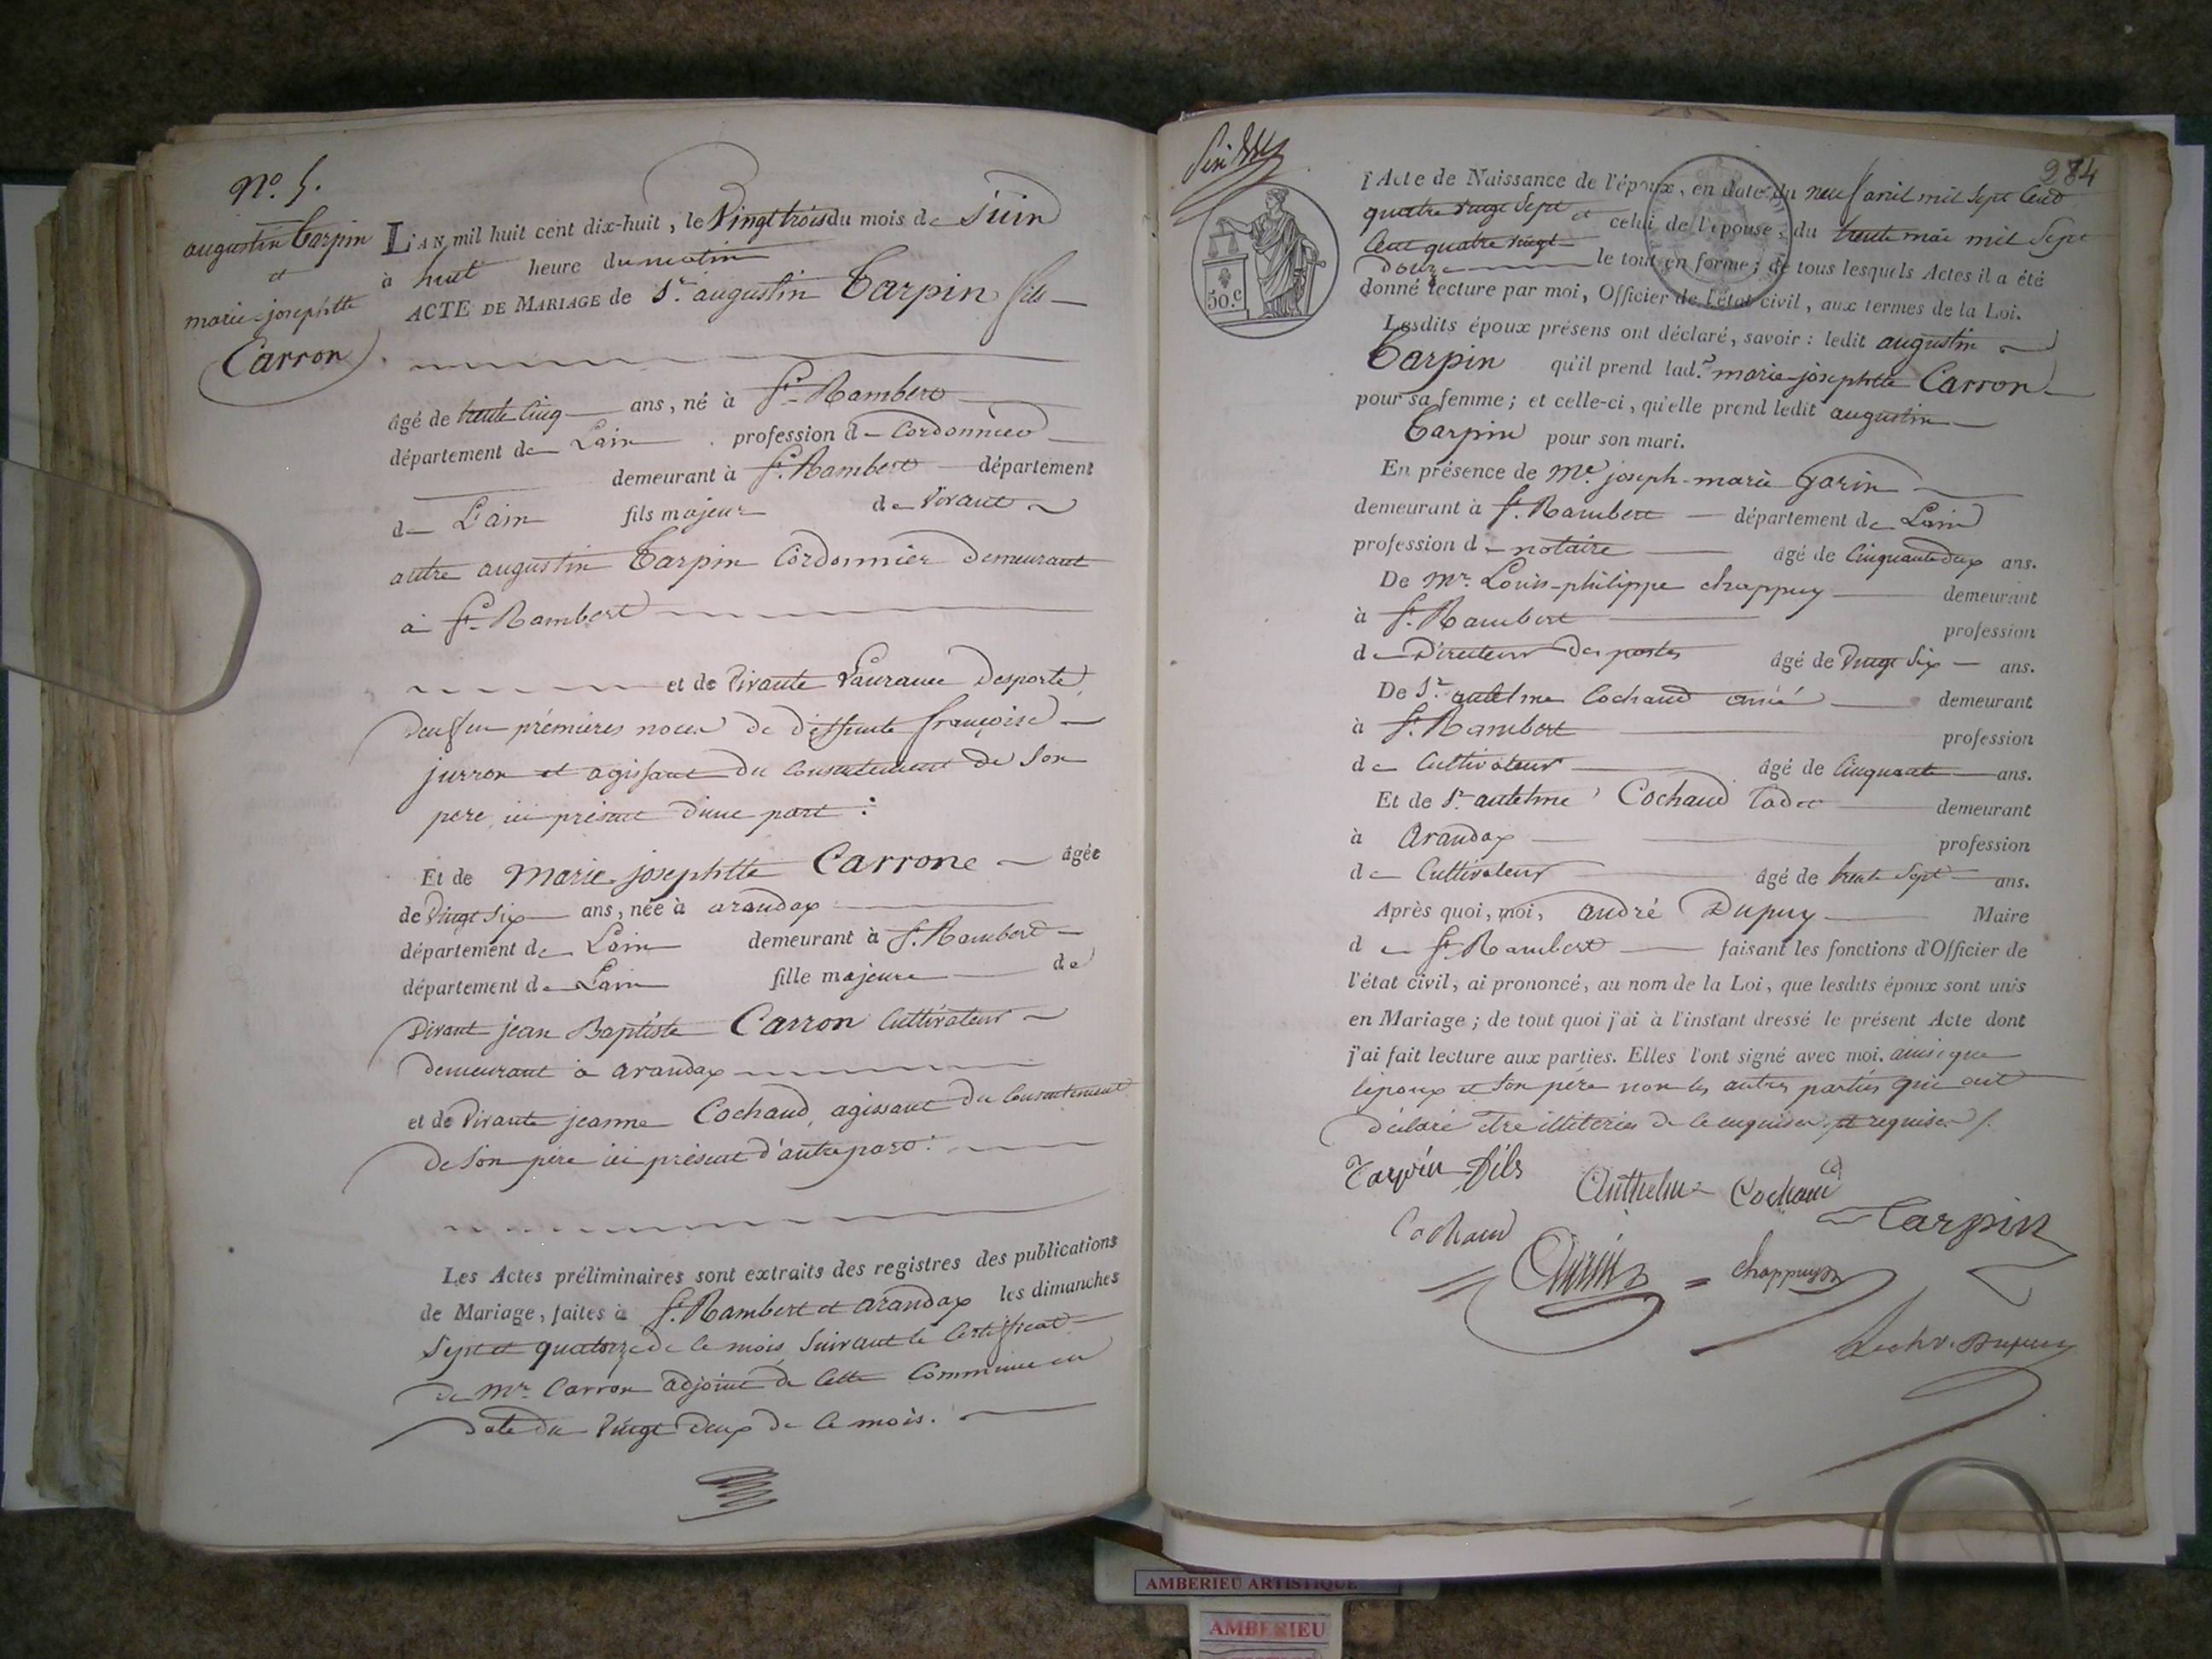 N.º 5.
augustin Tarpin
et
marie-josephtte
Carron
L'AN mil huit cent dix-huit, le Vingt trois du mois de Juin
à huit heure du matin
ACTE DE MARIAGE de Sr augustin Tarpin fils
âgé de trente cinq ans, né à St Rambert
département de Lain profession de Cordonnier
demeurant à St Rambert département
de L'ain fils majeur de Vivant
autre augustin Tarpin Cordonnier demeurant
à St Rambert
et de Vivante Laurance Desporte
veuf en prémières noces de deffunte françoise
jurron et agissant du Consentement de Son
pere ici présent d'une part :
Et de Marie josephtte Carrone âgée
de Vingt Six ans, née à arandax
département de Lain demeurant à St Rambert
département de Lain fille majeure de
Vivant jean Baptiste Carron Cultivateur
demeurant à arandax
et de Vivante jeanne Cochaud, agissant du Consentement
de Son père ici présent d'autre part.
Les Actes préliminaires sont extraits des registres des publications
de Mariage, faites à St Rambert et arandax les dimanches
Sept et quatorze de ce mois Suivant le Certifficat
de Mr Carron adjoint de Cette Commune en
date du Vingt deux de ce mois.
284
50.c
l'Acte de Naissance de l'époux, en date du neuf avril mil Sept Cent
quatre Vingt Sept et celui de l'épouse, du trente mai mil Sept
Cent quatre Vingt
Douze le tout en forme; de tous lesquels Actes il a été
donné lecture par moi, Officier de l'état civil, aux termes de la Loi.
Lesdits époux présens ont déclaré, savoir : ledit augustin
Tarpin qu'il prend lad.e marie-josephtte Carron
pour sa femme; et celle-ci, qu'elle prend ledit augustin
Tarpin pour son mari.
En présence de Me joseph-marie Garin
demeurant à St Rambert département de Lain
profession de notaire âgé de Cinquante deux ans.
De Mr. Louis-philippe chappuy demeurant
à St Rambert profession
de Directeur des postes âgé de Vingt Six ans.
De Sr antelme Cochaud ainé demeurant
à St Rambert profession
de Cultivateur âgé de Cinquante ans.
Et de Sr antelme Cochaud Cadet demeurant
à Arandax profession
de Cultivateur âgé de trente Sept ans.
Après quoi, moi, andré Dupuy Maire
de St Rambert faisant les fonctions d'Officier de
l'état civil, ai prononcé, au nom de la Loi, que lesdits époux sont unis
en Mariage; de tout quoi j'ai à l'instant dressé le présent Acte dont
j'ai fait lecture aux parties. Elles l'ont signé avec moi. ainsi que
l'époux et Son père non les autres parties qui ont
déclaré être illiterées de ce enquises et requises
Tarpin fils
Anthelme Cochaud
Tarpin
Cochaud
Garin
Chappuy
Dupuy
AMBERIEU ARTISTIQUE
AMBERIEU